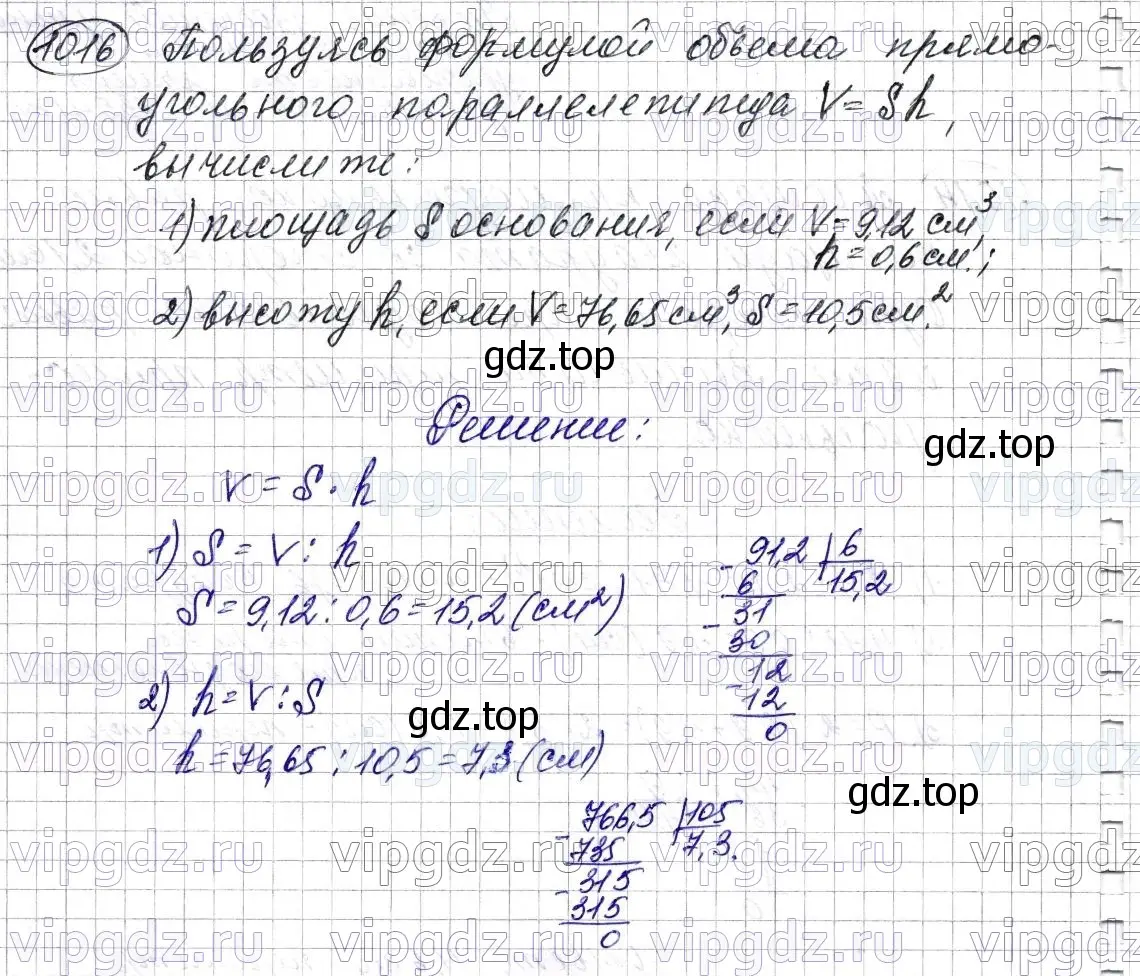 1016 Пользуясь формулой объема прямо-
угольного параллелепипеда V = Sh,
вычислите:
1) площадь S основания, если V = 9,12 см³,
h = 0,6 см.;
2) высоту h, если V = 76,65 см³, S = 10,5 см².
gdz.top
Решение:
gdz.top
V = S · h
1) S = V : h
S = 9,12 : 0,6 = 15,2 (см²)
91,2 | 6
- 6 15,2
31
- 30
12
- 12
0
2) h = V : S
gdz.top
h = 76,65 : 10,5 = 7,3 (см)
gdz.top
766,5 | 105
- 735 7,3.
315
- 315
0
vipgdz.ru